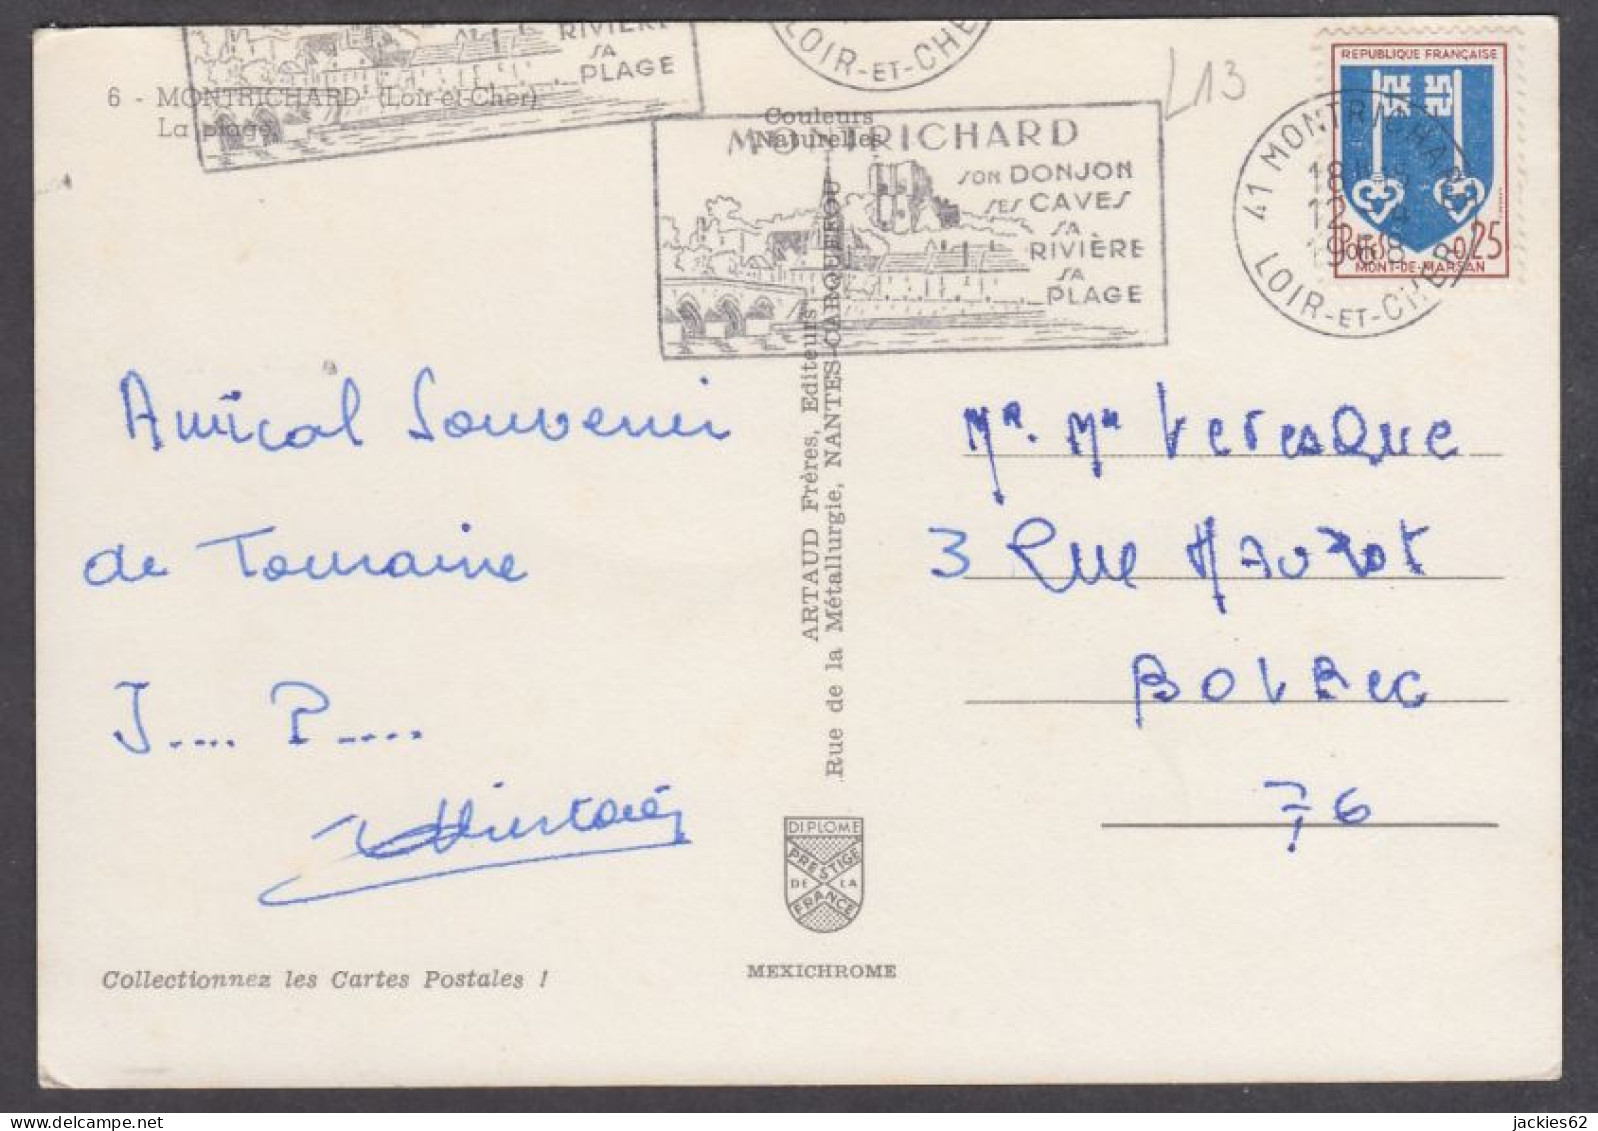 6 - MONTRICHARD (Loir-et-Cher)
La plage
RIVIÈRE
SA
PLAGE
LOIR-ET-CHER
L13
Couleurs
Naturelles
MONTRICHARD
SON DONJON
SES CAVES
SA
RIVIÈRE
SA
PLAGE
REPUBLIQUE FRANÇAISE
POSTES 0,25
MONT-DE-MARSAN
41 MONTRICHARD
12 -4
1968
LOIR-ET-CHER
Amical Souvenir
de Touraine
J.... P.....
ARTAUD Frères, Editeurs
Rue de la Métallurgie, NANTES-CARQUEFOU
Mr. Me
3 Rue
BOLBEC
76
DIPLOME
PRESTIGE
DE LA
FRANCE
Collectionnez les Cartes Postales !
MEXICHROME
jackies62